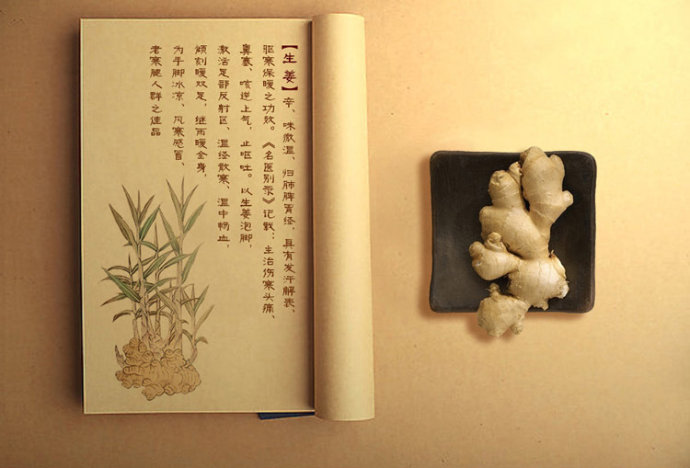 【生姜】辛、味微温，归肺脾胃经，具有发汗解表、
驱寒保暖之功效。《名医别录》记载：主治伤寒头痛、
鼻塞、咳逆上气，止呕吐。以生姜泡脚，
激活足部反射区，温经散寒、温中畅血，
倾刻暖双足，继而暖全身，
为手脚冰凉、风寒感冒、
老寒腿人群之佳品